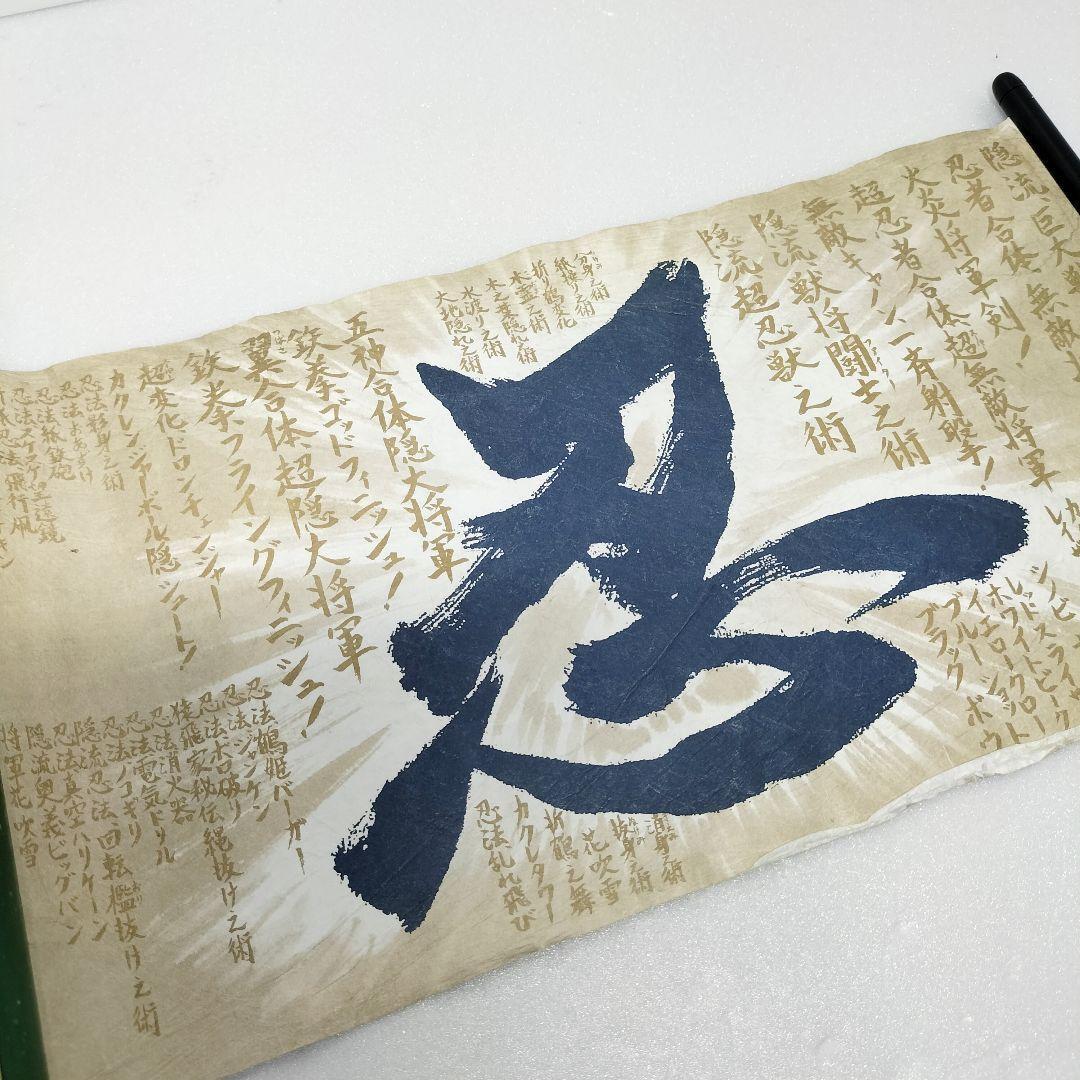 隠流巨大
忍者合体！無敵将軍
火炎将軍剣！
超忍者合体超無敵将軍
無敵キャノン一斉射撃！
隠流獣将闘士之術
隠流超忍獣之術
レッドスライサー
ホワイトビーク
イエロークロー
ブルーショット
ブラックボウ
忍
分身之術
紙吹雪之術
折り鶴変化
木霊之術
木之葉隠れ之術
水渡り之術
大地隠れ之術
分身之術
花吹雪
折鶴之舞
カクレタワー
忍法乱れ飛び
五神合体隠大将軍
鉄拳ゴッドフィニッシュ！
翼合体超隠大将軍
鉄拳フライングフィニッシュ！
超変化ドロンチェンジャー
カクレンジャーボール隠シュート！
忍法影身之術
忍法紙鉄砲
忍法鶴姫バーガー
忍法ジャンケン
忍法ボロ破り
猿飛家秘伝縄抜け之術
忍法消火器
忍法電気ドリル
忍法ノコギリ
隠流忍法回転檻抜け之術
忍法真空ハリケーン
隠流奥義ビッグバン
将軍花吹雪